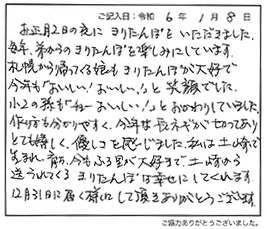 ご記入日：令和 6年 1月 8日
お正月2日の夜に きりたんぽを いただきました。
毎年、茅からのきりたんぽを楽しみにしています。
札幌から帰ってくる娘も きりたんぽが大好で
今年も「おいしい！おいしい！」と 笑顔でした。
小2の孫も「おいしい。」と おかわりしていました。
作り方も分かりやすく、今年は長ネギが切ってあり
とても嬉しく、優しさを感じました。私は土崎で
生まれ育ち、今もふる里が大好きです。土崎から
送られてくる きりたんぽは幸せにしてくれます。
12月31日に届く様にして頂きありがとうございます。
ご協力ありがとうございました。